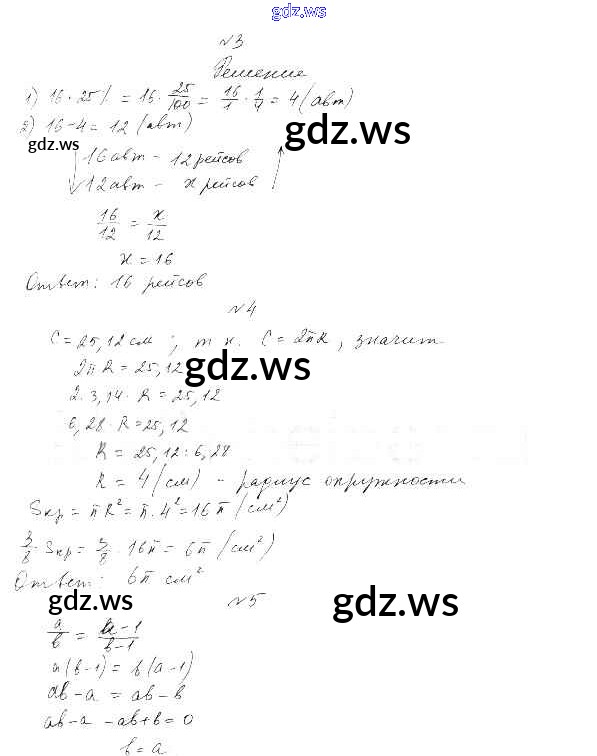 gdz.ws
№3
Решение
1) 16 · 25% = 16 · 25/100 = 16/1 · 1/4 = 4 (авт)
2) 16-4 = 12 (авт)
gdz.ws
gdz.ws
16 авт - 12 рейсов
12 авт - x рейсов
16/12 = x/12
x = 16
Ответ: 16 рейсов
№4
C = 25,12 см ; т к. C = 2πR, значит
2πR = 25,12
gdz.ws
2 · 3,14 · R = 25,12
6,28 · R = 25,12
R = 25,12 : 6,28
R = 4 (см) - радиус окружности
Sкр = πR² = π · 4² = 16π (см²)
3/8 Sкр = 3/8 · 16π = 6π (см²)
Ответ: 6π см²
gdz.ws
gdz.ws
№5
a/b = a-1/b-1
a(b-1) = b(a-1)
ab-a = ab-b
ab-a-ab+b=0
b=a